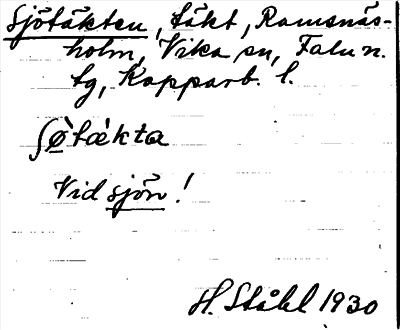 Sjötäkten, täkt, Ramsnäs-
holm, Vika sn, Falu n.
tg, Kopparb. l.
ʃø̀tæ̀kta
Vid sjön!
H. Ståhl 1930